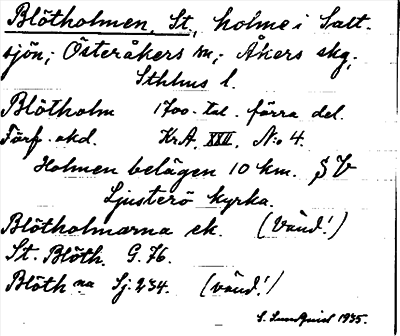 Blötholmen, St., holme i Salt-
sjön; Österåkers sn; Åkers skg,
Sthlms l.
Blötholm 1700-tal. förra del.
Färf. okd. Kr.A. XXII, N:o 4.
Holmen belägen 10 km. SV
Ljusterö kyrka.
Blötholmarna ek. (Vänd!)
St. Blöth. G. 76.
Blöth na Sj. 234. (vänd!)
S. Lundquist 1935.